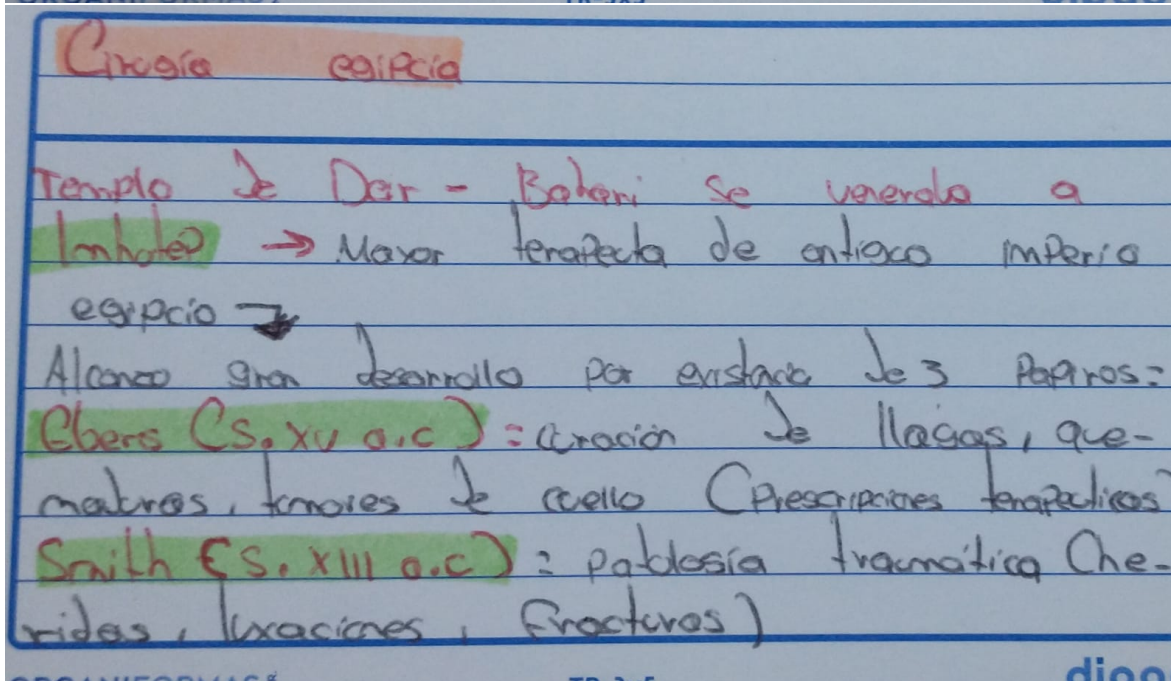 Cirugía egipcia
Templo de Der - Bahari se veneraba a
Imhotep → Mayor terapeuta de antiguo imperio
egipcio →
Alcanzo gran desarrollo por existencia de 3 papiros:
Ebers (s. XV a.c) = curación de llagas, que-
maduras, tumores de cuello (Prescripciones terapeuticas
Smith (s. XIII a.c) : patología traumática (he-
ridas, luxaciones, fracturas)